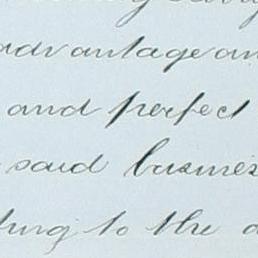 advantage an
and perfect
said busines
ting to the